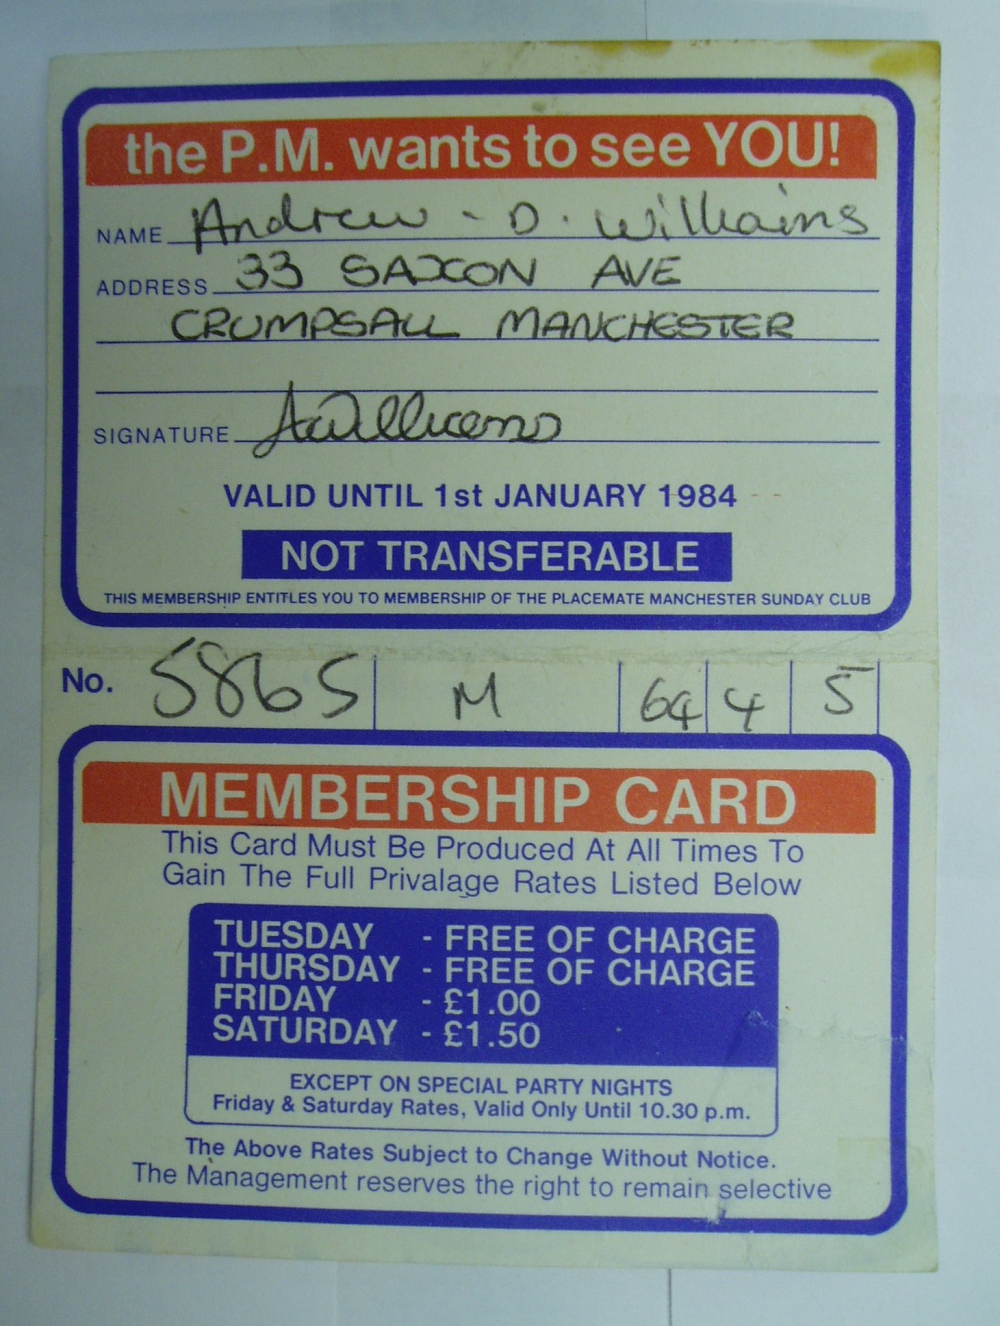 the P.M. wants to see YOU!
NAME Andrew - D. Williams
ADDRESS 33 SAXON AVE
CRUMPSALL MANCHESTER
SIGNATURE AWilliams
VALID UNTIL 1st JANUARY 1984
NOT TRANSFERABLE
THIS MEMBERSHIP ENTITLES YOU TO MEMBERSHIP OF THE PLACEMATE MANCHESTER SUNDAY CLUB
No. 5865 M 64 4 5
MEMBERSHIP CARD
This Card Must Be Produced At All Times To
Gain The Full Privalage Rates Listed Below
TUESDAY - FREE OF CHARGE
THURSDAY - FREE OF CHARGE
FRIDAY - £1.00
SATURDAY - £1.50
EXCEPT ON SPECIAL PARTY NIGHTS
Friday & Saturday Rates, Valid Only Until 10.30 p.m.
The Above Rates Subject to Change Without Notice.
The Management reserves the right to remain selective